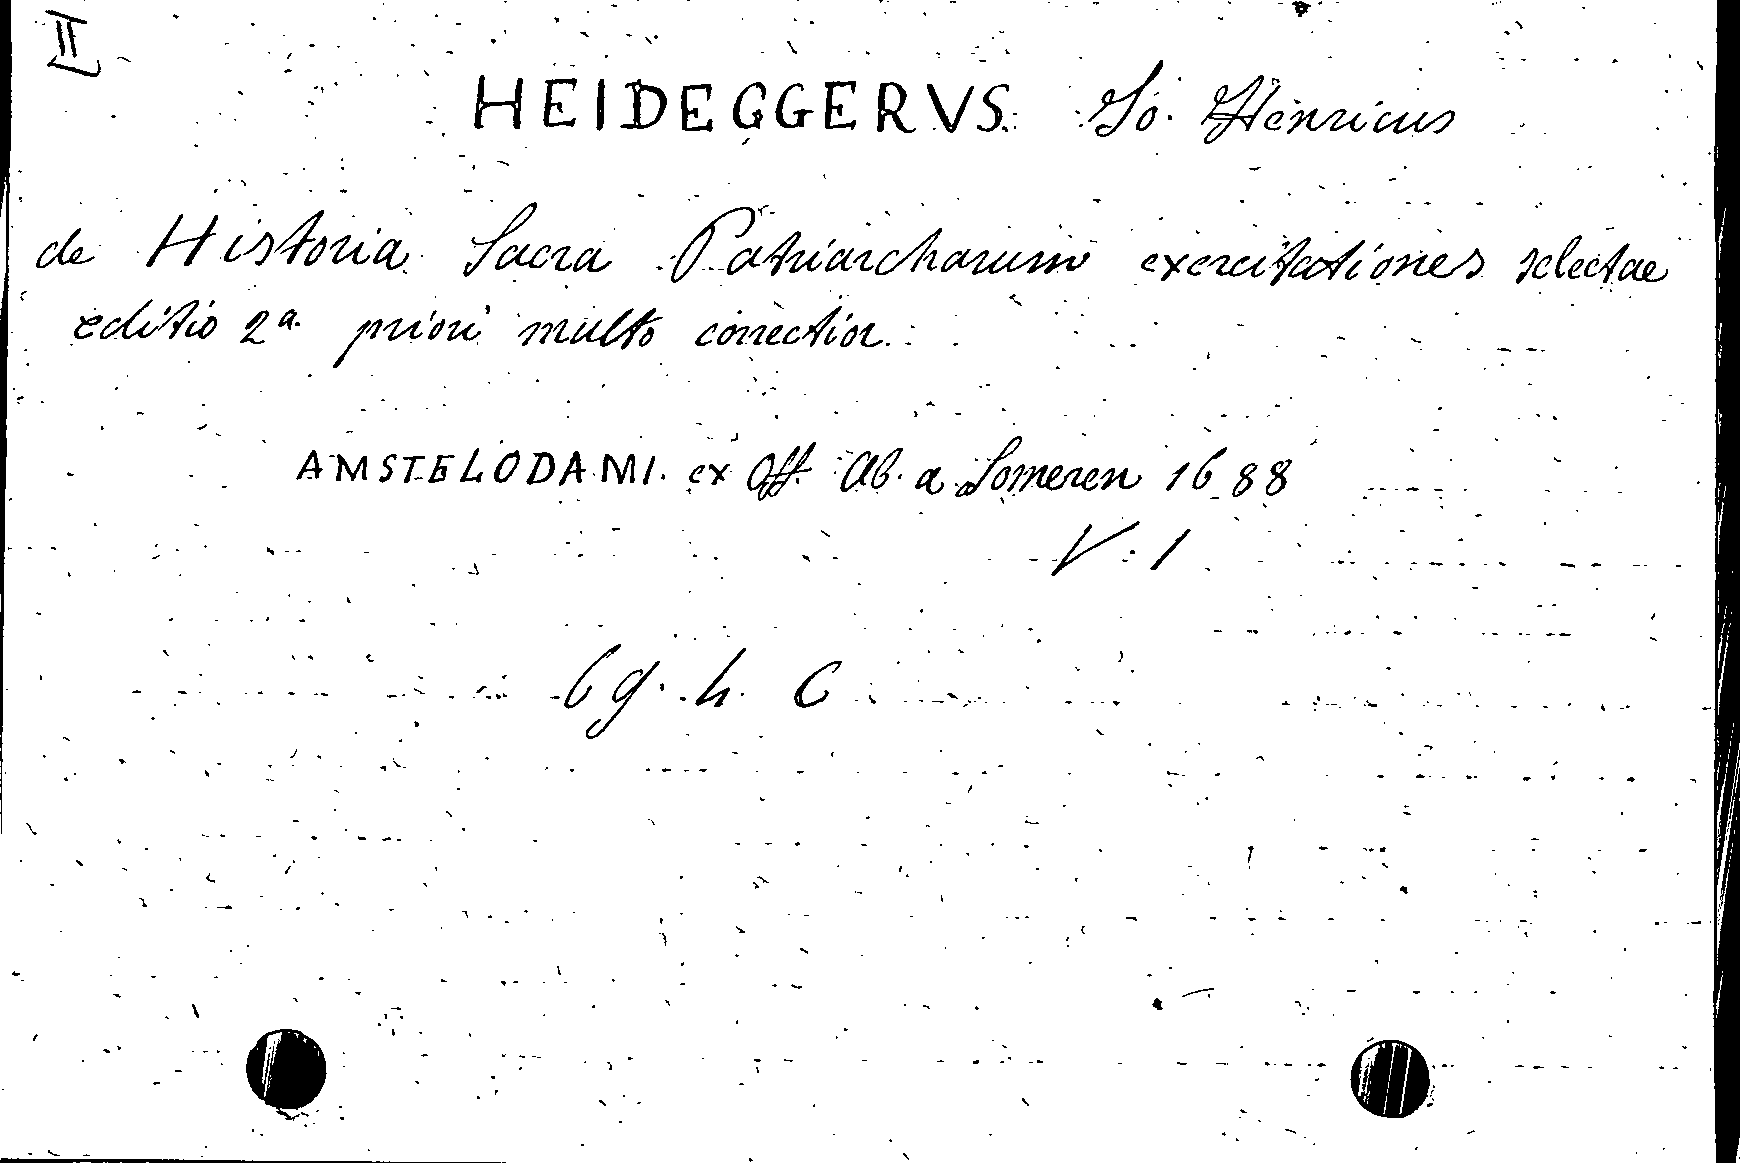 II
HEIDEGGERVS Jo. Henricus
de Historia Sacra Patriarcharum exercitationes selectae
editio 2a. priori multo correctior.
AMSTELODAMI. ex Off. Ab. a Someren 1688
V : 1
69. h. C